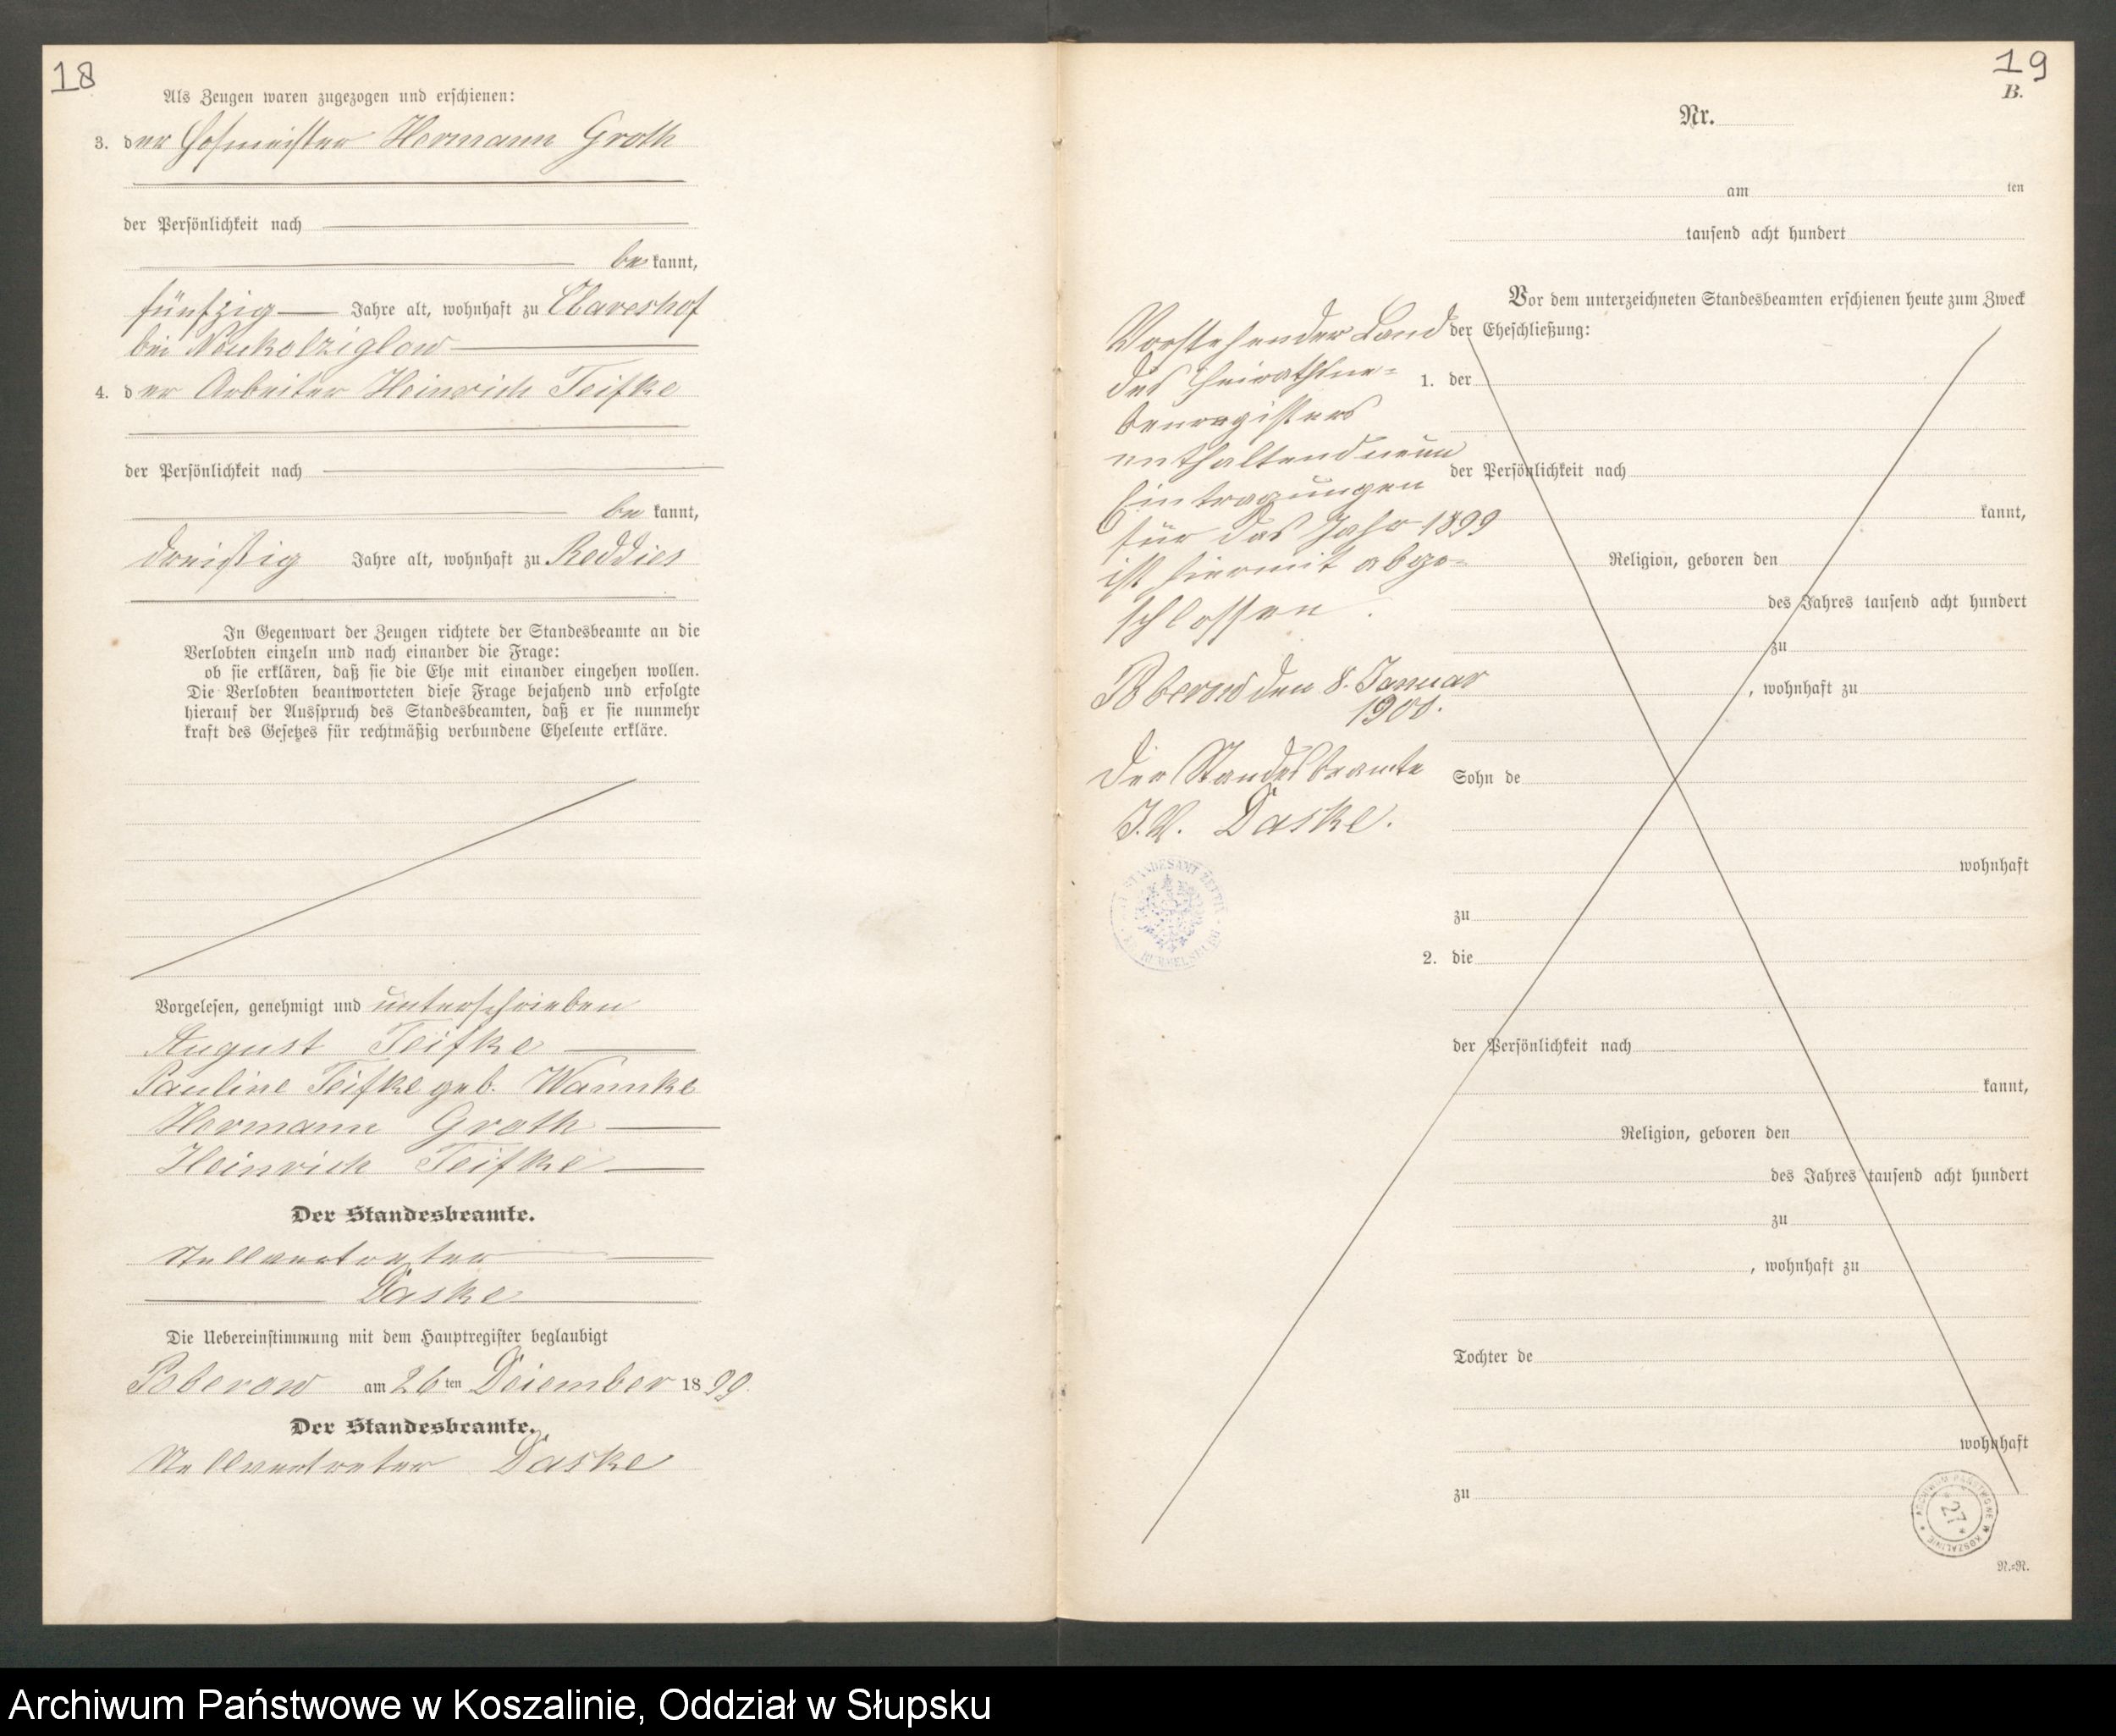 18
Als Zeugen waren zugezogen und erschienen:
3. der Hofmeister Hermann Groth
der Persönlichkeit nach
bekannt,
fünfzig Jahre alt, wohnhaft zu Clareshof
bei Neukolziglow
4. der Arbeiter Heinrich Teifke
der Persönlichkeit nach
bekannt,
dreißig Jahre alt, wohnhaft zu Reddies
In Gegenwart der Zeugen richtete der Standesbeamte an die
Verlobten einzeln und nach einander die Frage:
ob sie erklären, daß sie die Ehe mit einander eingehen wollen.
Die Verlobten beantworteten diese Frage bejahend und erfolgte
hierauf der Ausspruch des Standesbeamten, daß er sie nunmehr
kraft des Gesetzes für rechtmäßig verbundene Eheleute erkläre.
Vorgelesen, genehmigt und unterschrieben
August Teifke
Pauline Teifke geb. Wannke
Hermann Groth
Heinrich Teifke
Der Standesbeamte.
Stellvertreter
Daske
Die Uebereinstimmung mit dem Hauptregister beglaubigt
Poberow am 26 ten Dezember 1899.
Der Standesbeamte.
Stellvertreter Daske
19
B.
Nr.
am ten
tausend acht hundert
Vor dem unterzeichneten Standesbeamten erschienen heute zum Zweck
der Eheschließung:
1. der
der Persönlichkeit nach
kannt,
Religion, geboren den
des Jahres tausend acht hundert
zu
, wohnhaft zu
Sohn de
wohnhaft
zu
2. die
der Persönlichkeit nach
kannt,
Religion, geboren den
des Jahres tausend acht hundert
zu
, wohnhaft zu
Tochter de
wohnhaft
zu
Vorstehender Band
des Heirathsne-
benregisters
enthaltend neun
Eintragungen
für das Jahr 1899
ist hiermit abge-
schlossen.
Poberow den 8. Januar
1900.
Der Standesbeamte
J.V. Daske.
STANDESAMT
RUMMELSBURG
ARCHIWUM PAŃSTWOWE W KOSZALINIE
* 27 *
N.=R.
Archiwum Państwowe w Koszalinie, Oddział w Słupsku